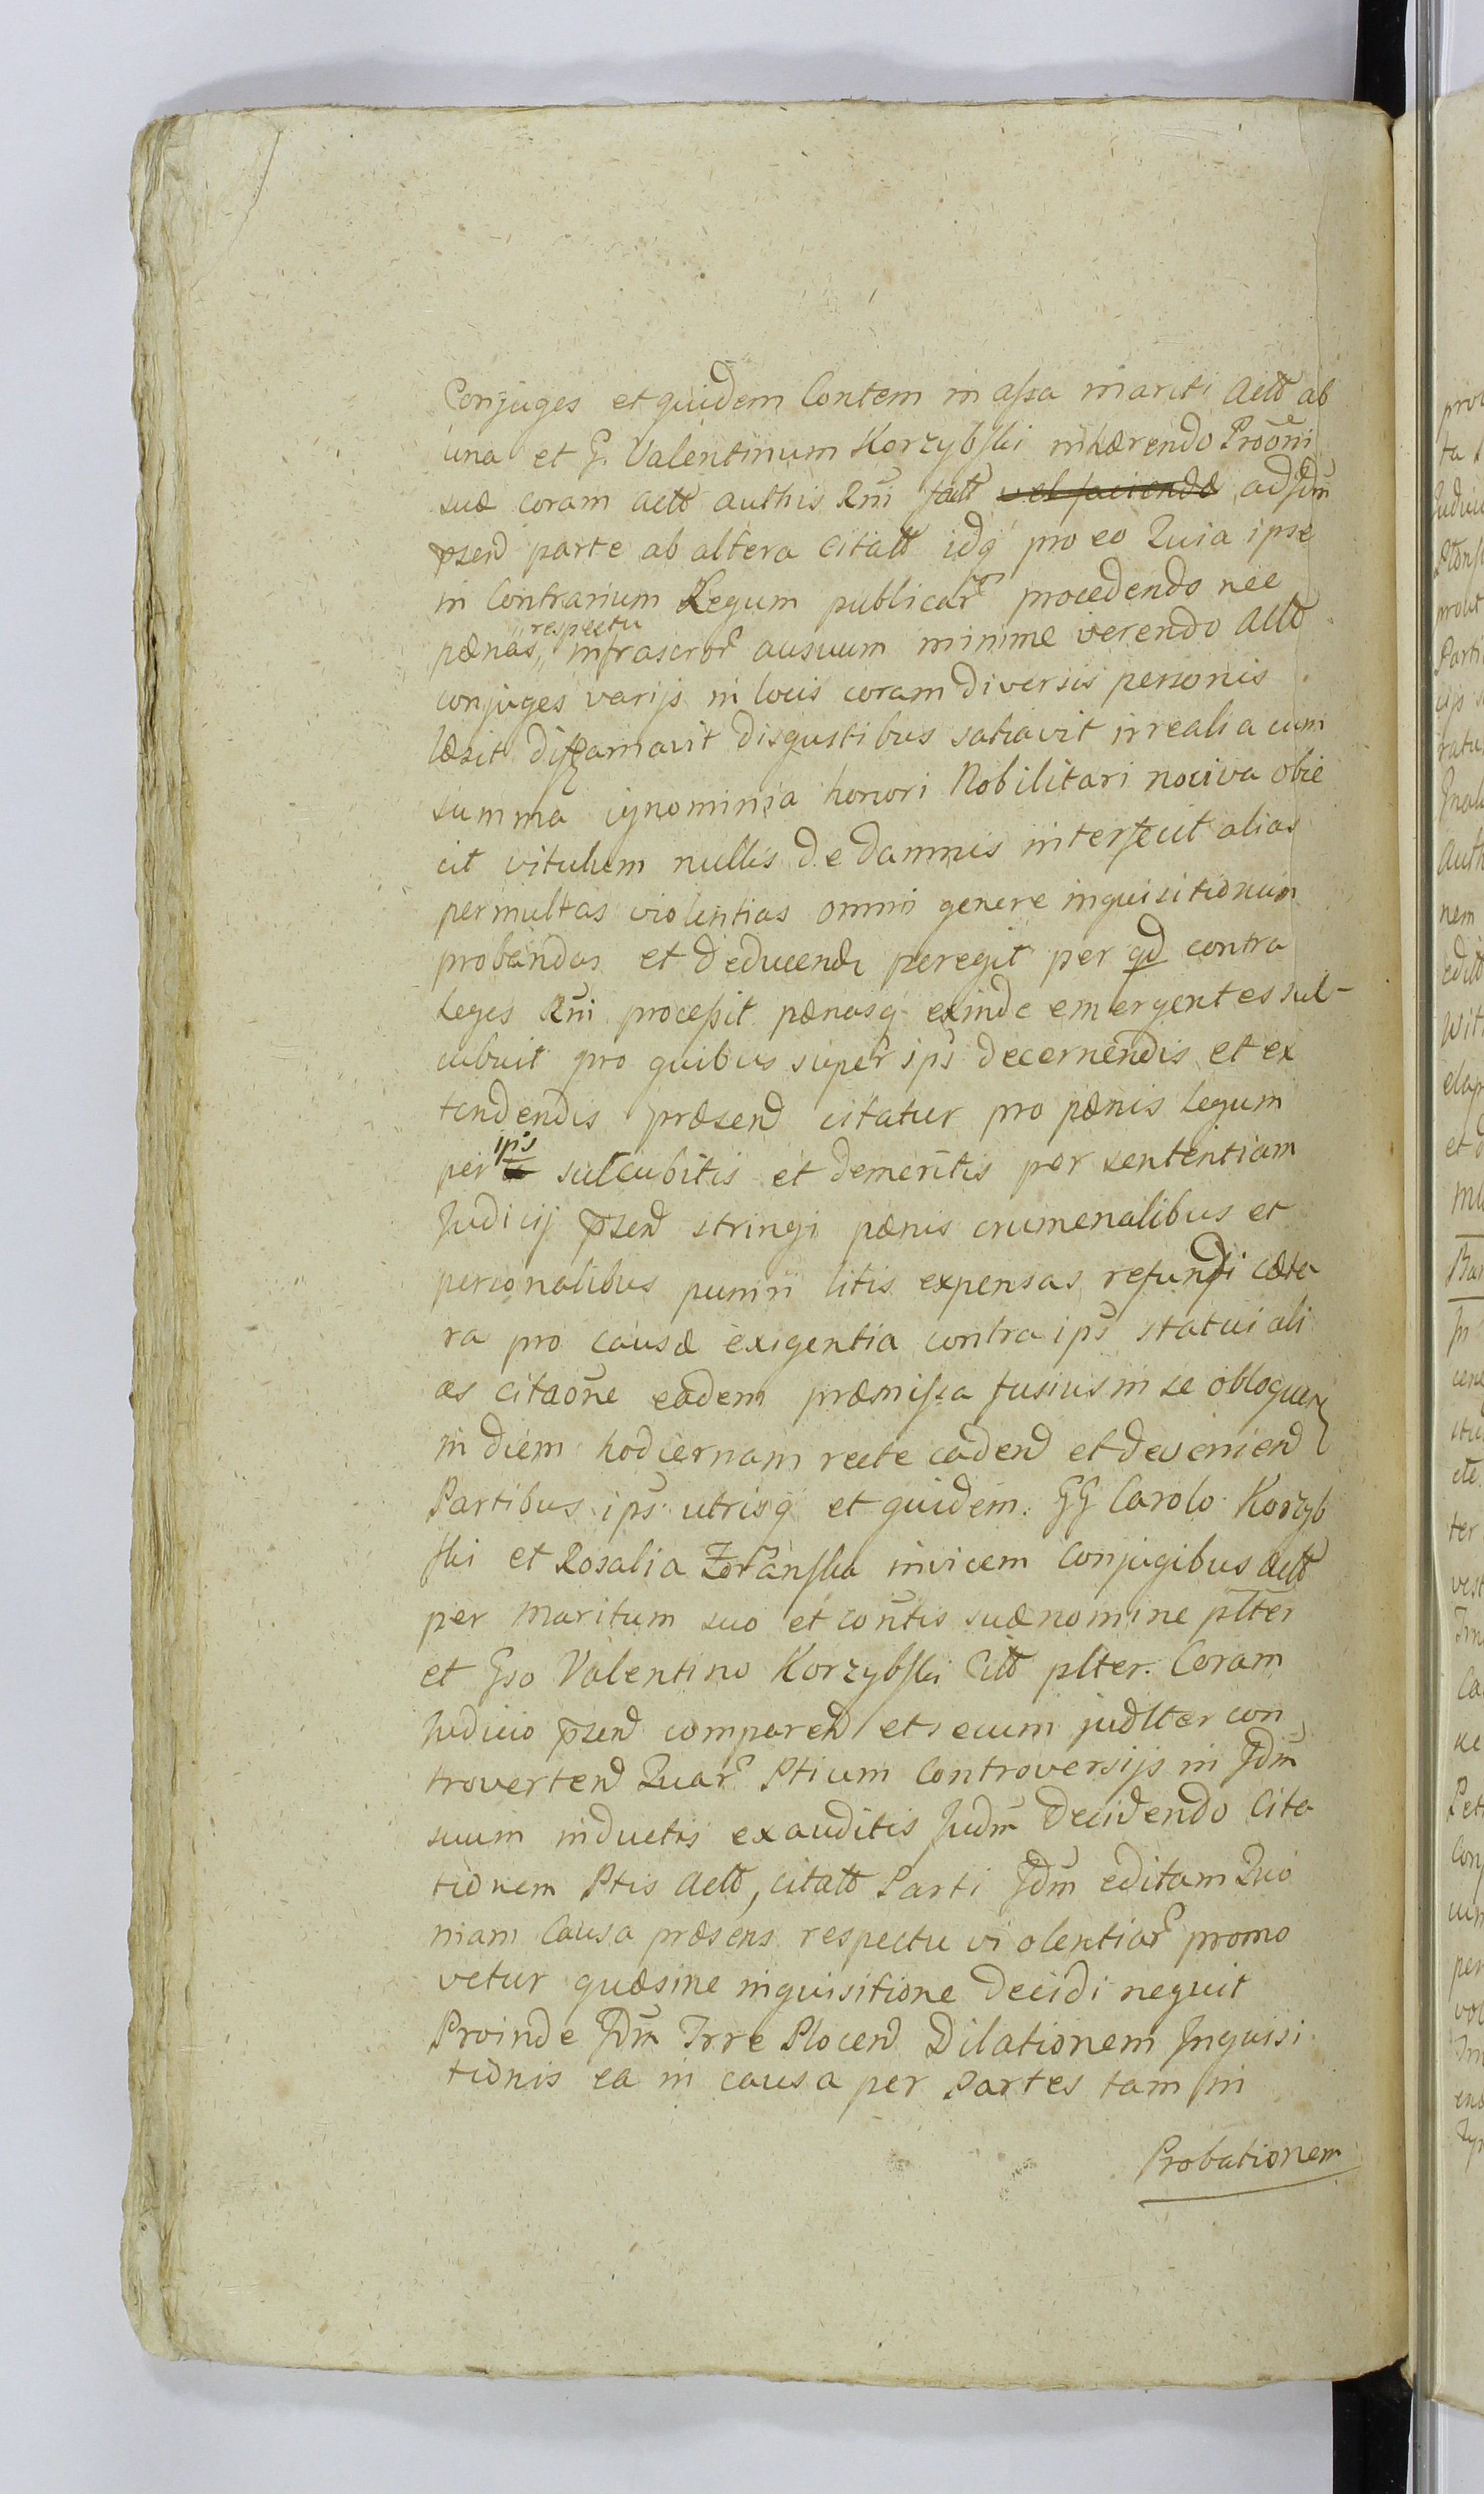 Conjuges et quidem Contem in assa mariti Actt ab
una et G. Valentinum Korzybski inhærendo Proõni
suæ coram actt authis Rñi fatt vel faciendæ adjdm̃
p̃send parte ab altera citatt idq̃ pro eo Quia ipse
in Contrarium Legum publicar̃ procedendo nec
pænas, respectu infrascror̃ ausuum minime verendo Actt
conjuges varijs in locis coram diversis personis
læsit diffamavit disgustibus satiavit irrealia cum
summa ignominia honori Nobilitari nociva obie
cit vitulum nullis de damnis interfecit alias
permultas violentias omni genere inquisitionum
probandas et deducend peregit per qd contra
leges Rñi processit pænasq̃ exinde emergentes suc-
cubuit pro quibus super ips̃ decernendis et ex
tendendis præsend citatur pro pænis legum
per ips̃ succubitis et demeritis per sententiam
Judicij p̃send stringi pænis crumenalibus et
personalibus puniri litis expensas refundi cæte
ra pro causæ exigentia contra ips̃ statui ali
as citaõne eadem præmissa fusius in se obloquen
in diem hodiernam recte cadend et deveniend
Partibus ips̃ utrisq̃ et quidem GG Carolo Korzyb
ski et Rosalia Zoranska invicem Conjugibus Actt
per Maritum suo et cõntis suæ nomine pltter
et Gso Valentino Korzybski Citt plter. Coram
Judicio p̃send comparend et secum judltter con
trovertend Quar̃ Ptium Controversijs in Jdm̃
suum inductis exauditis Judm̃ Decidendo Cita
tionem Ptis Actt, citatt Parti Jdm̃ editam Quo
niam Causa præsens respectu violentiar̃ promo
vetur quæ sine inquisitione decidi nequit
Proinde Jdm̃ Trre Plocend Dilationem Inquisi
tionis ea in causa per Partes tam in
Probationem